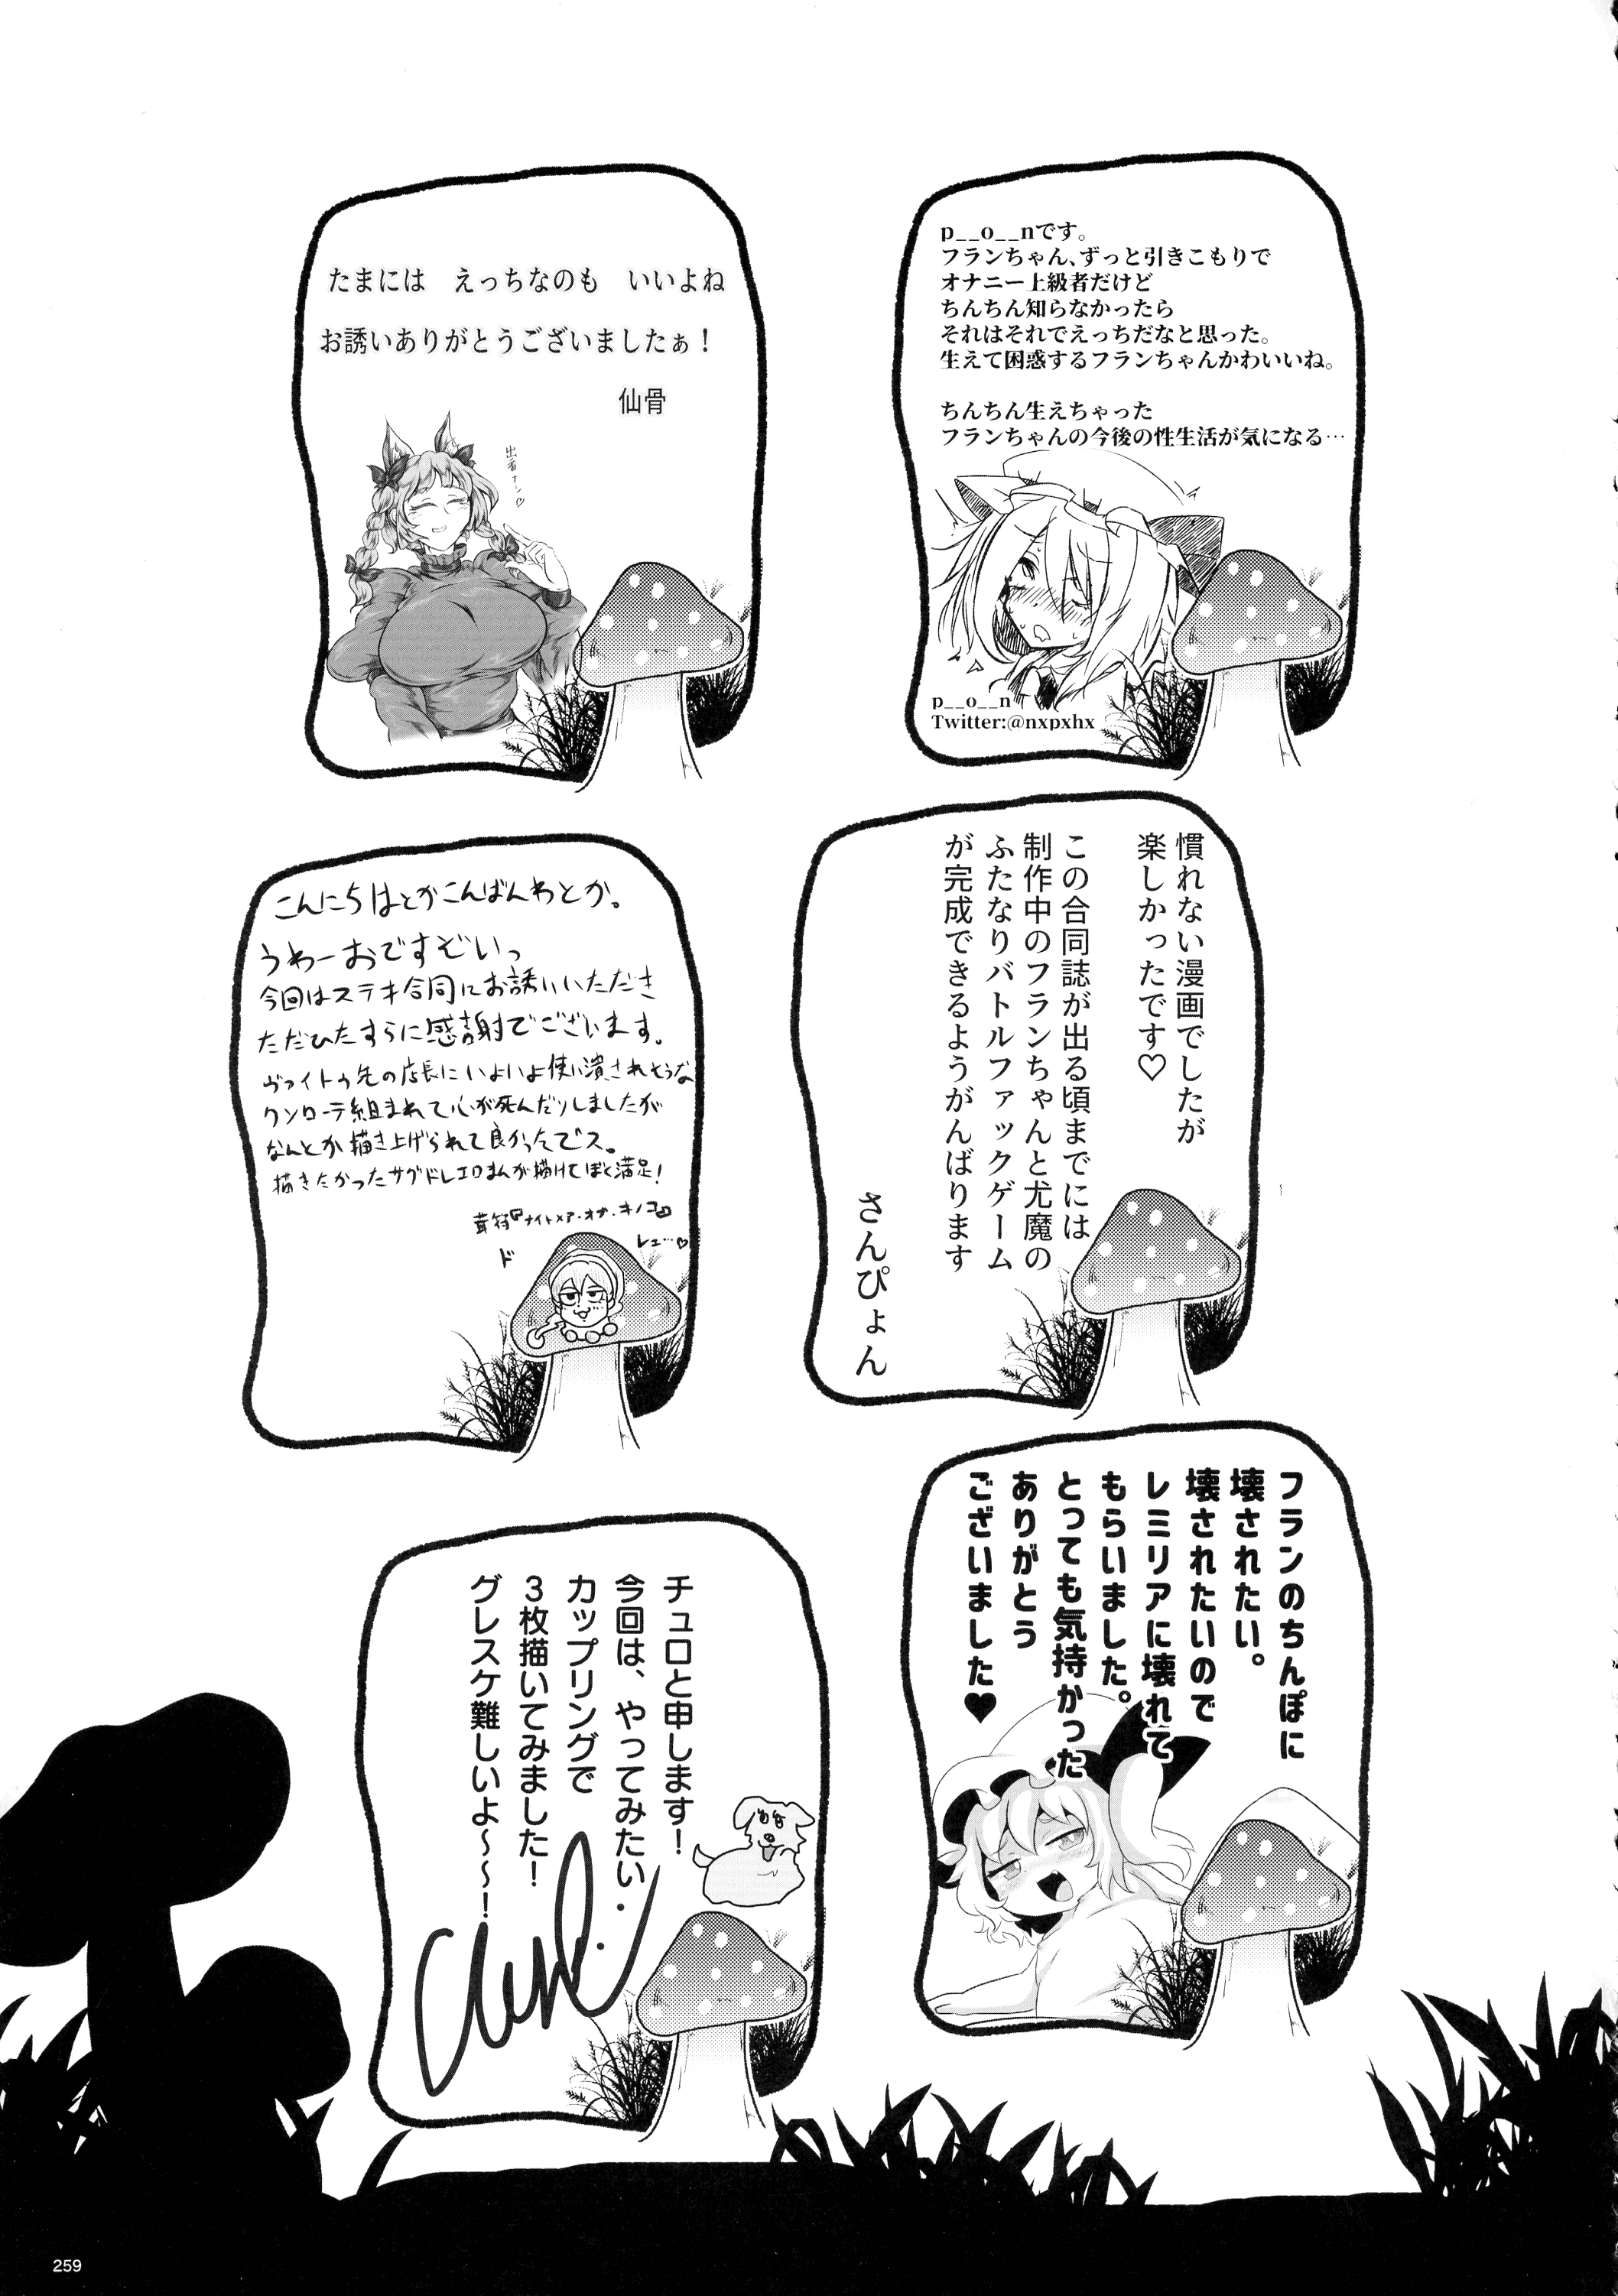 p__o__nです。
フランちゃん、ずっと引きこもりで
オナニー上級者だけど
ちんちん知らなかったら
それはそれでえっちだなと思った。
生えて困惑するフランちゃんかわいいね。
ちんちん生えちゃった
フランちゃんの今後の性生活が気になる…
p__o__n
Twitter:@nxpxhx
たまには　えっちなのも　いいよね
お誘いありがとうございましたぁ！
仙骨
慣れない漫画でしたが
楽しかったです♡
この合同誌が出る頃までには
制作中のフランちゃんと尤魔の
ふたなりバトルファックゲーム
が完成できるようがんばります
さんぴょん
こんにちはとかこんばんわとか。
うわーおですぞいっ
今回はステキ合同にお誘いいただき
ただひたすらに感謝でございます。
ヴァイトゥ先の店長にいよいよ使い潰されそうな
ワンローテ組まれて心が死んだりしましたが
なんとか描き上げられて良かったでス。
描きたかったサグドレエロまんが描けてぼく満足！
茸符『ナイトメア・オブ・キノコ』
フランのちんぽに
壊されたい。
壊されたいので
レミリアに壊れて
もらいました。
とっても気持かった
ありがとう
ございました♥
チュロと申します！
今回は、やってみたい
カップリングで
3枚描いてみました！
グレスケ難しいよ〜〜！
259